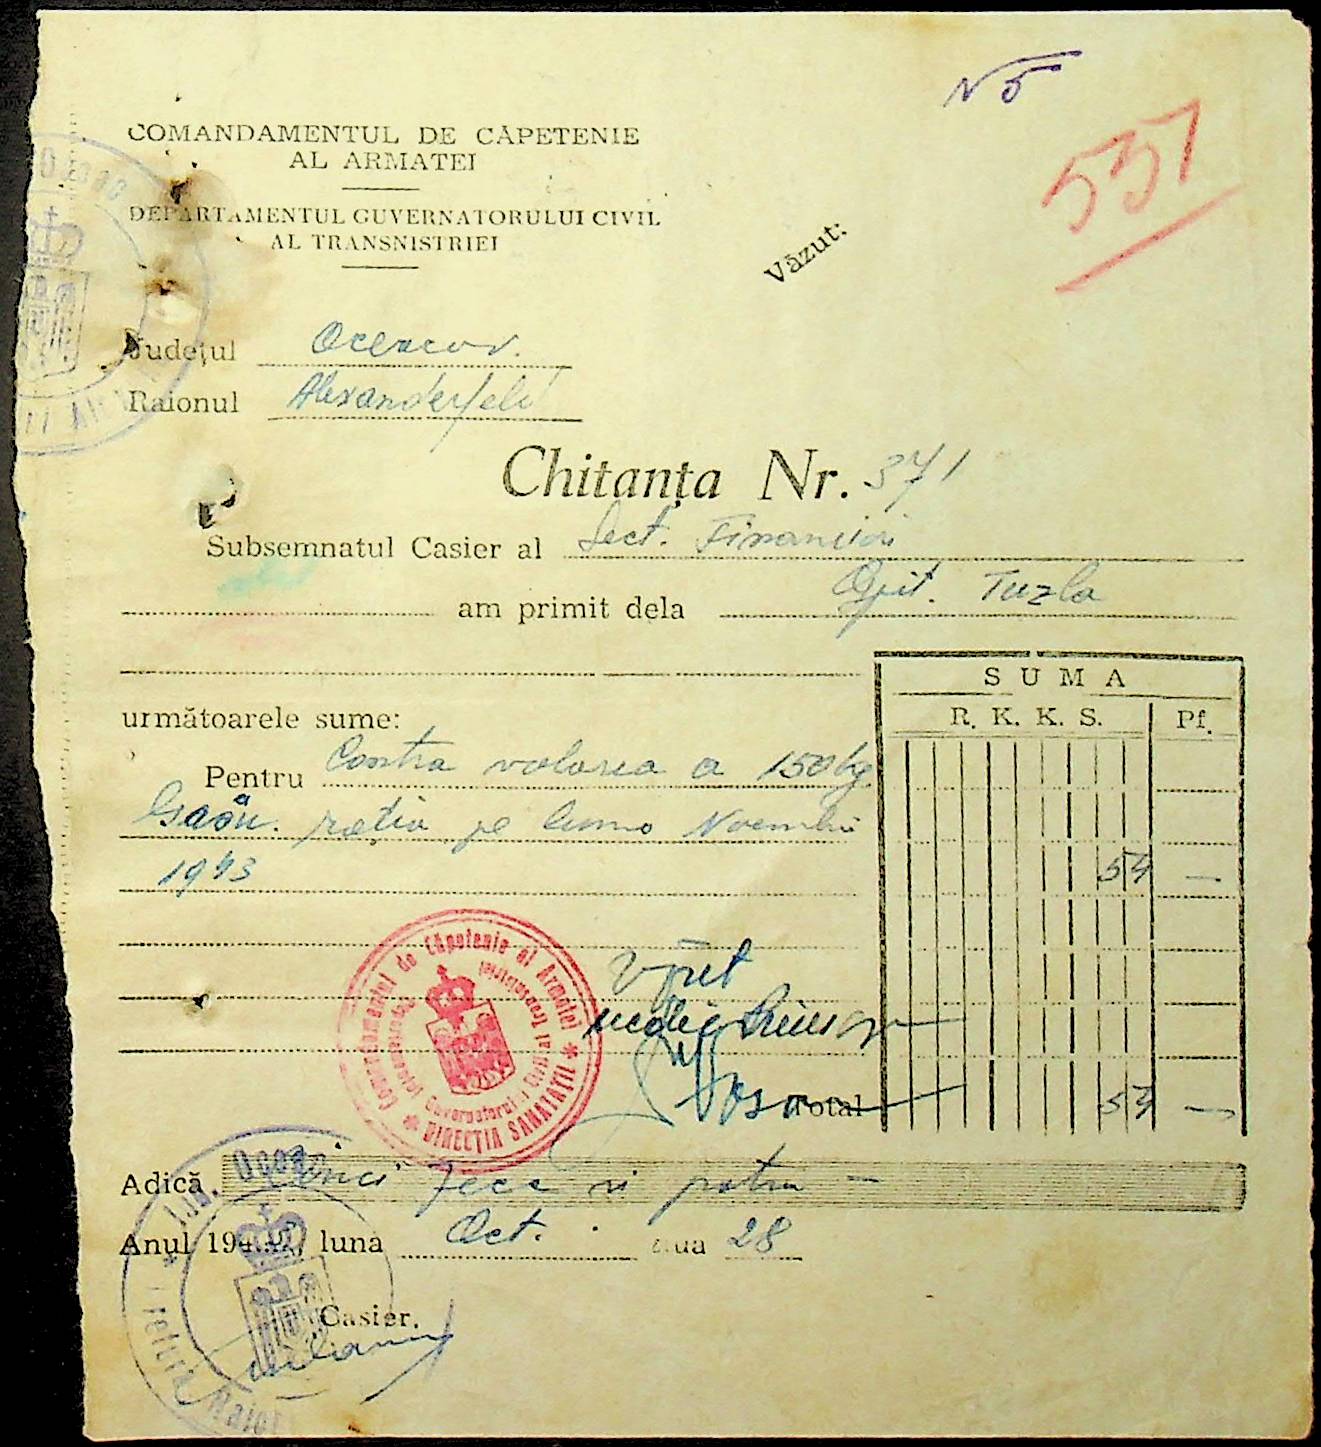 N 5
537
COMANDAMENTUL DE CĂPETENIE
AL ARMATEI
DEPARTAMENTUL GUVERNATORULUI CIVIL
AL TRANSNISTRIEI
Văzut:
Județul Oceacov.
Raionul Alexanderfeld
Chitanța Nr. 371
Subsemnatul Casier al Sect. Financiar
am primit dela Opit. Tuzla
SUMA
următoarele sume:
R. K. K. S. Pf.
Pentru Contra valorea a 150 kg
Grâu. rația pe luna Noembrie
1943 54 —
Comandamentul de Căpetenie al Armatei
Departamentul Guvernatorului Civil al Transnistriei
DIRECȚIA SANATAȚII
Total 54 —
Adică cinci zece si patru —
Anul 194 luna Oct. ziua 28
Casier,